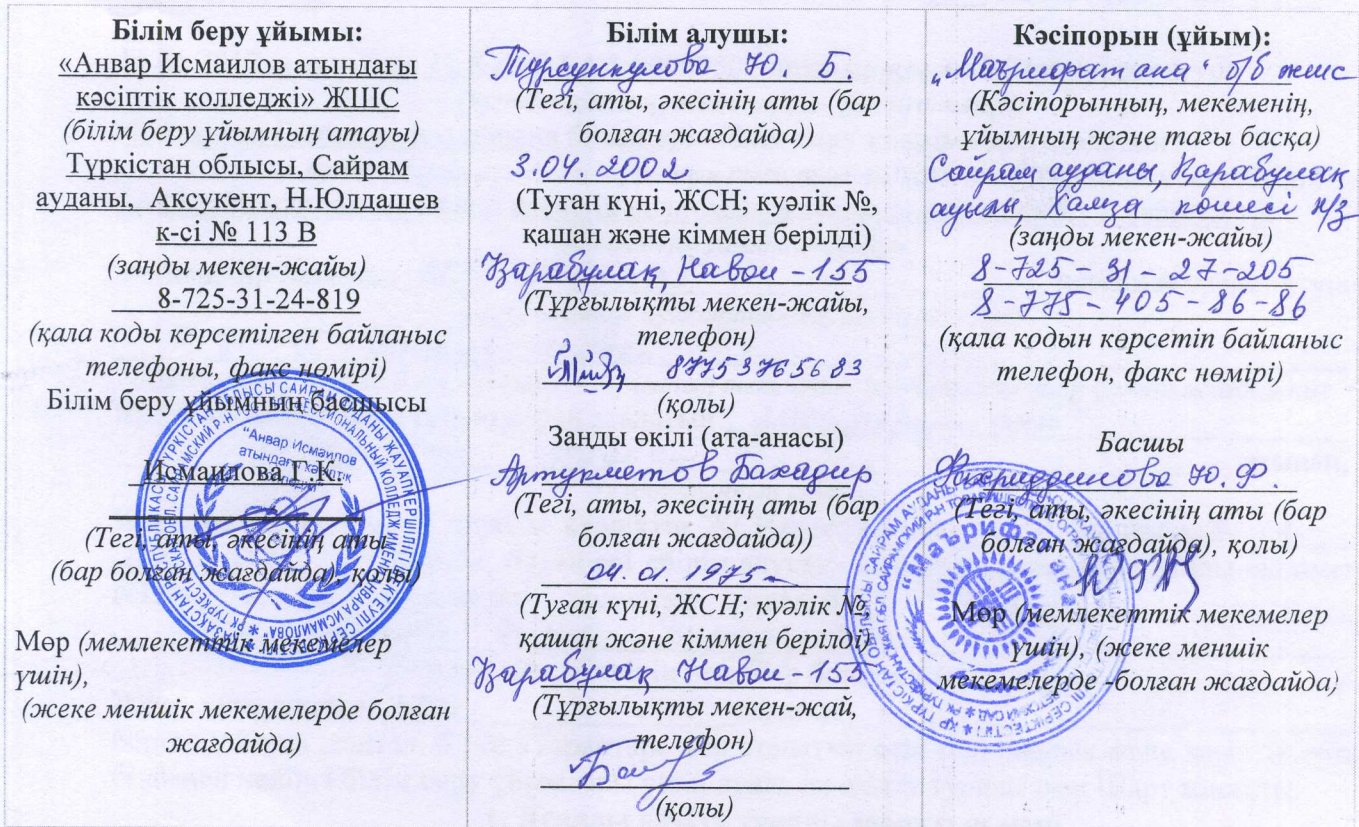 Білім беру ұйымы:
«Анвар Исмаилов атындағы
кәсіптік колледжі» ЖШС
(білім беру ұйымның атауы)
Түркістан облысы, Сайрам
ауданы, Аксукент, Н.Юлдашев
к-сі № 113 В
(заңды мекен-жайы)
8-725-31-24-819
(қала коды көрсетілген байланыс
телефоны, факс нөмірі)
Білім беру ұйымның басшысы
Исмаилова Г.К.
(Тегі, аты, әкесінің аты
(бар болған жағдайда), қолы)
Мөр (мемлекеттік мекемелер
үшін),
(жеке меншік мекемелерде болған
жағдайда)
"Анвар Исмаилов
атындағы кәсіптік
колледжі"
Білім алушы:
Турсункулова Ю. Б.
(Тегі, аты, әкесінің аты (бар
болған жағдайда))
3.04.2002
(Туған күні, ЖСН; куәлік №,
қашан және кіммен берілді)
Қарабулақ, Навои-155
(Тұрғылықты мекен-жайы,
телефон)
87753765683
(қолы)
Заңды өкілі (ата-анасы)
Артукметов Бахадир
(Тегі, аты, әкесінің аты (бар
болған жағдайда))
04.01.1975
(Туған күні, ЖСН; куәлік №,
қашан және кіммен берілді)
Қарабұлақ Навои-155
(Тұрғылықты мекен-жай,
телефон)
(қолы)
Кәсіпорын (ұйым):
„Маърифат ана" б/б жшс
(Кәсіпорынның, мекеменің,
ұйымның және тағы басқа)
Сайрам ауданы, Қарабұлақ
ауылы, Хамза көшесі н/з
(заңды мекен-жайы)
8-725-31-27-205
8-775-405-86-86
(қала кодын көрсетіп байланыс
телефон, факс нөмірі)
Басшы
Фахриддинова Ю.Ф.
(Тегі, аты, әкесінің аты (бар
болған жағдайда), қолы)
Мөр (мемлекеттік мекемелер
үшін), (жеке меншік
мекемелерде -болған жағдайда)
"Маърифат ана"